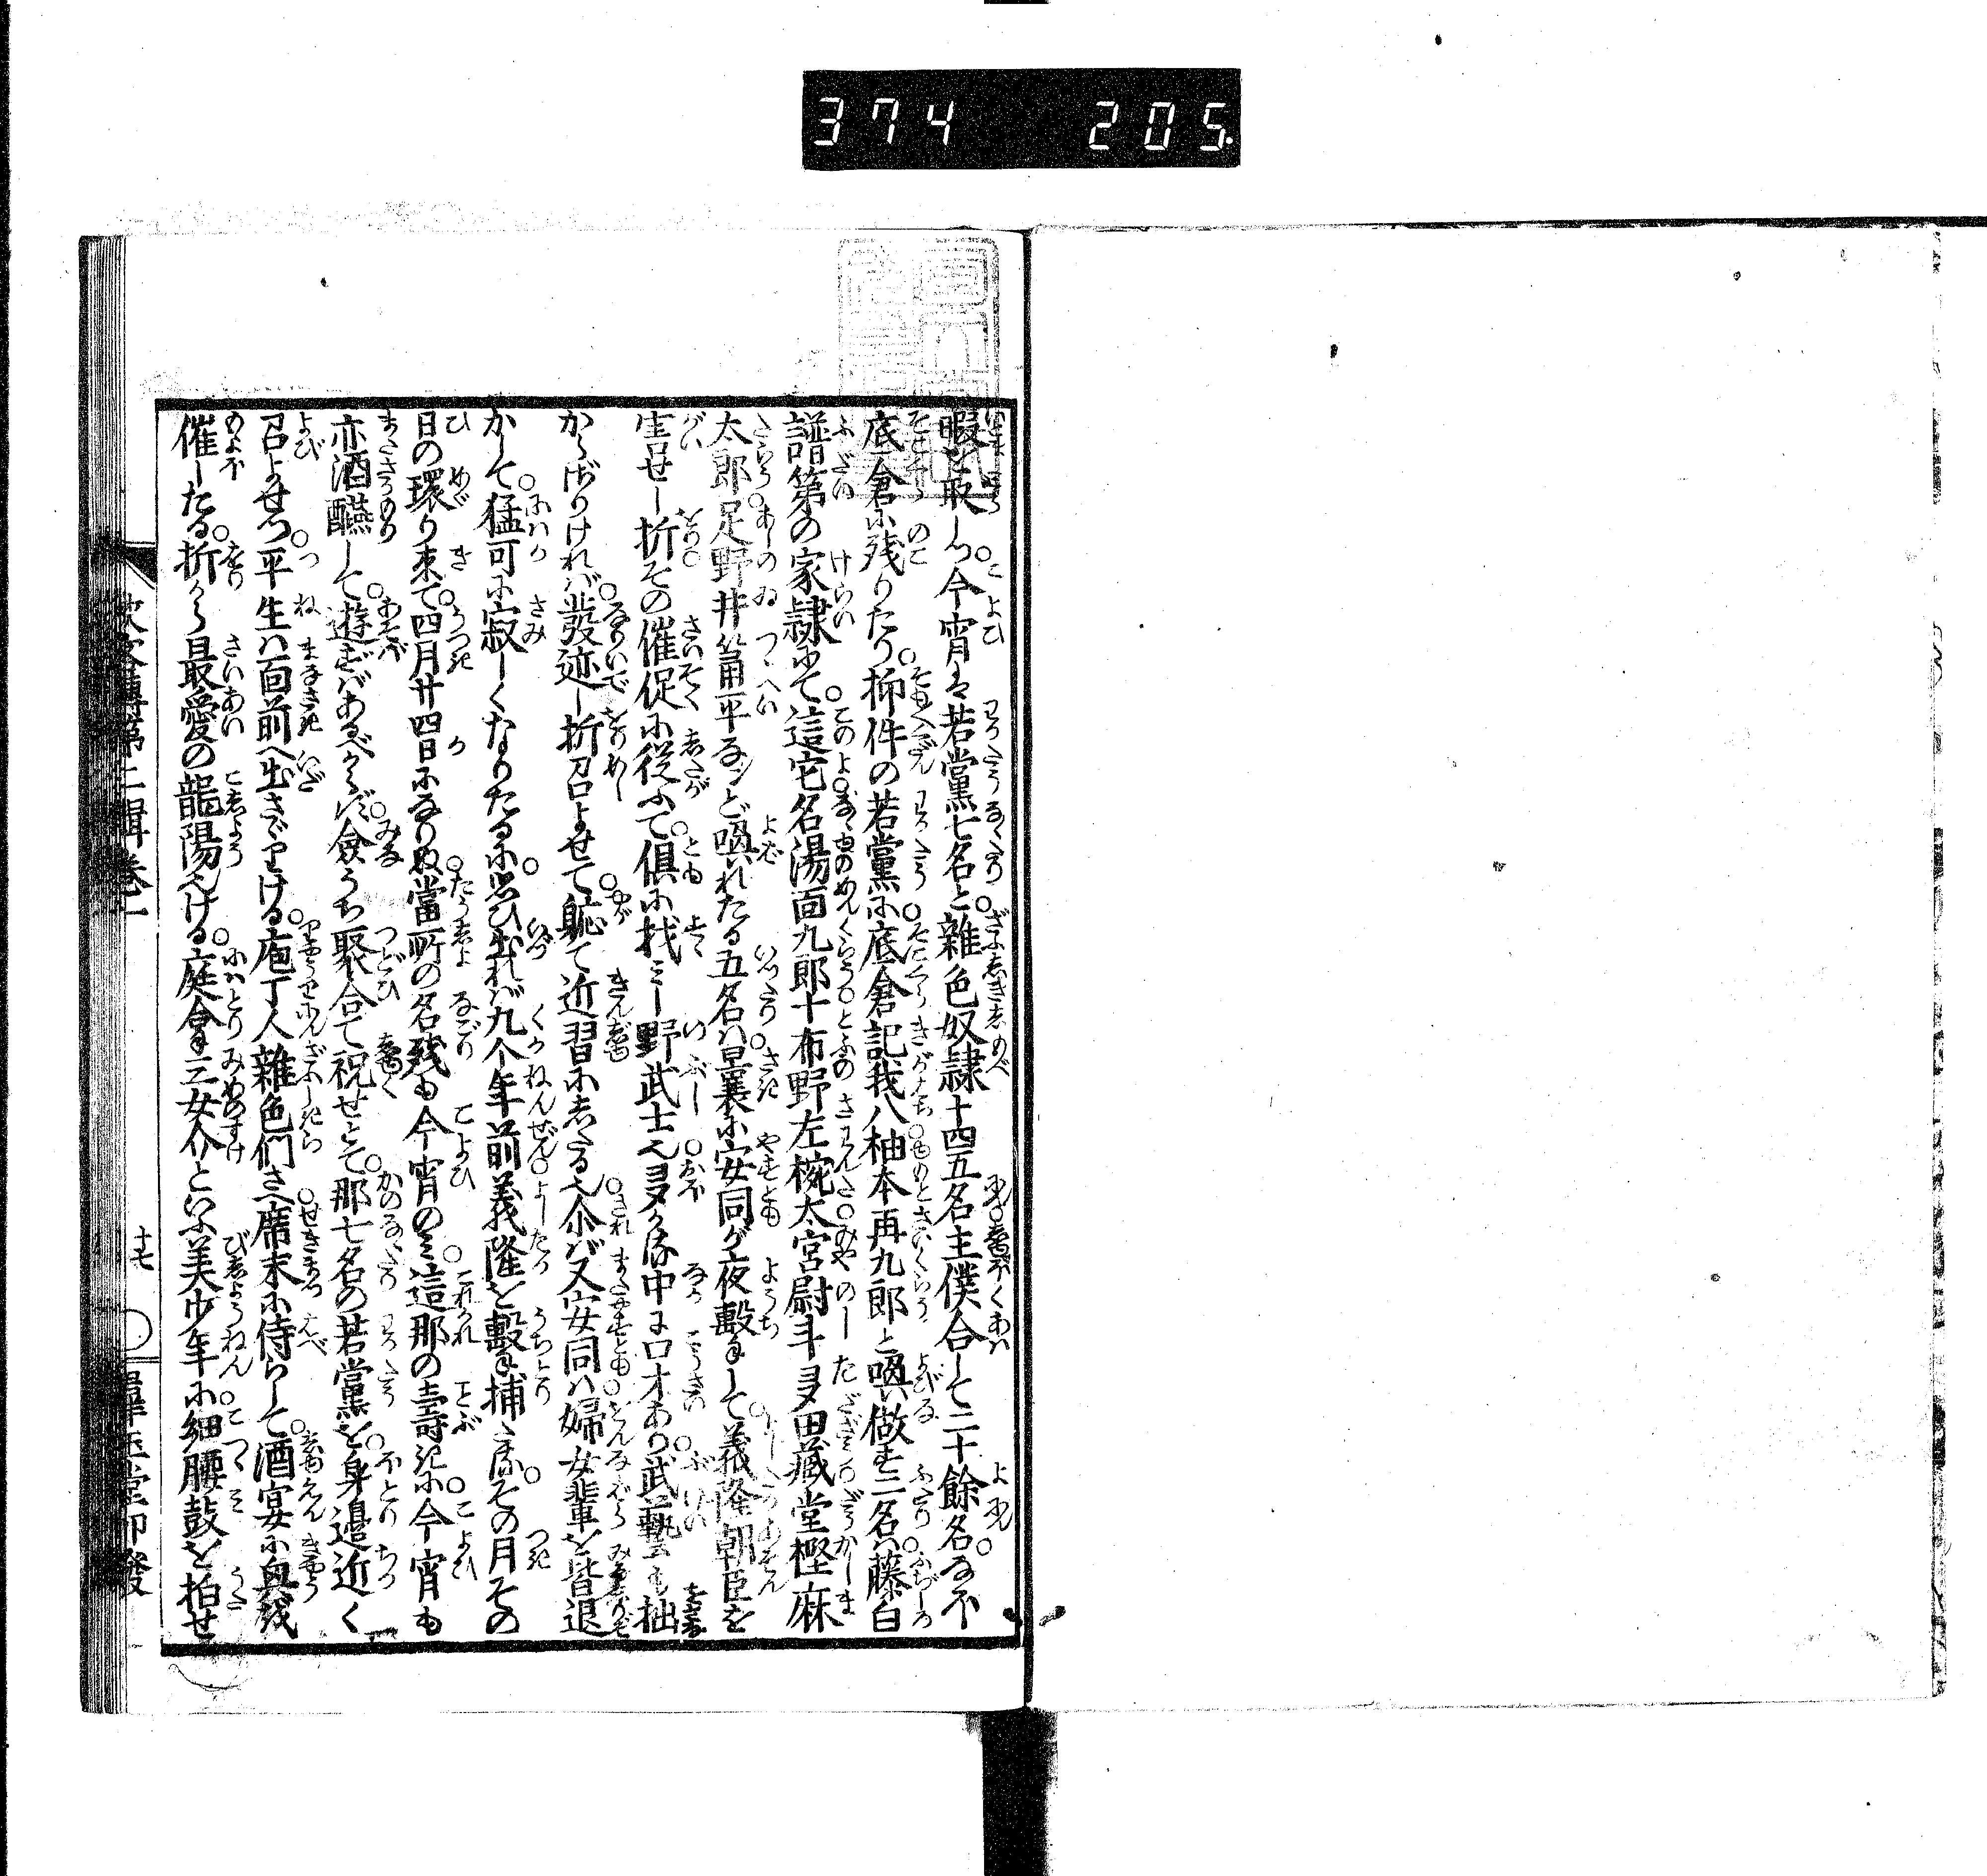 374 205
暇を取しつ。今宵は若黨七名と。雜色奴隷十四五名主僕合して二十餘名。なほ
底倉に残りたり。抑件の若黨に。底倉記我八。柚本再九郎と喚做す二名は。藤白
譜第の家隷にて。這它名湯面九郎。十布野左椀太。宮尉斗多田藏。堂樫麻
太郎。足野井筩平などゝ喚れたる五名は。曩に安同が夜擊にして。義隆朝臣を
害せし折。その催促に従ふて。倶に找みし野武士也。多かる中に口才あり。武藝も拙
からざりければ。發迹し折召よせて。軈て近習にしたる也。介ば又安同は。婦女輩を皆退
かして。猛可に寂しくなりたるに。思ひ出れば九个年前。義隆を擊捕たる。その月その
日の環り來て。四月廿四日になりぬ。當所の名残も今宵のみ。這那の壽きに。今宵も
亦酒醼して。遊ばずばあるべからず。僉うち聚合て祝せとて。那七名の若黨を。身邉近く
召よせつ。平生は面前へ出さゞりける。庖丁人雜色們さへ。席末に侍らして。酒宴に興を
催したる折から。最愛の龍陽也ける。庭鳥三女介といふ美少年に。細腰鼓を拍せ
俠客傳第二輯卷一
十七
群玉堂印發